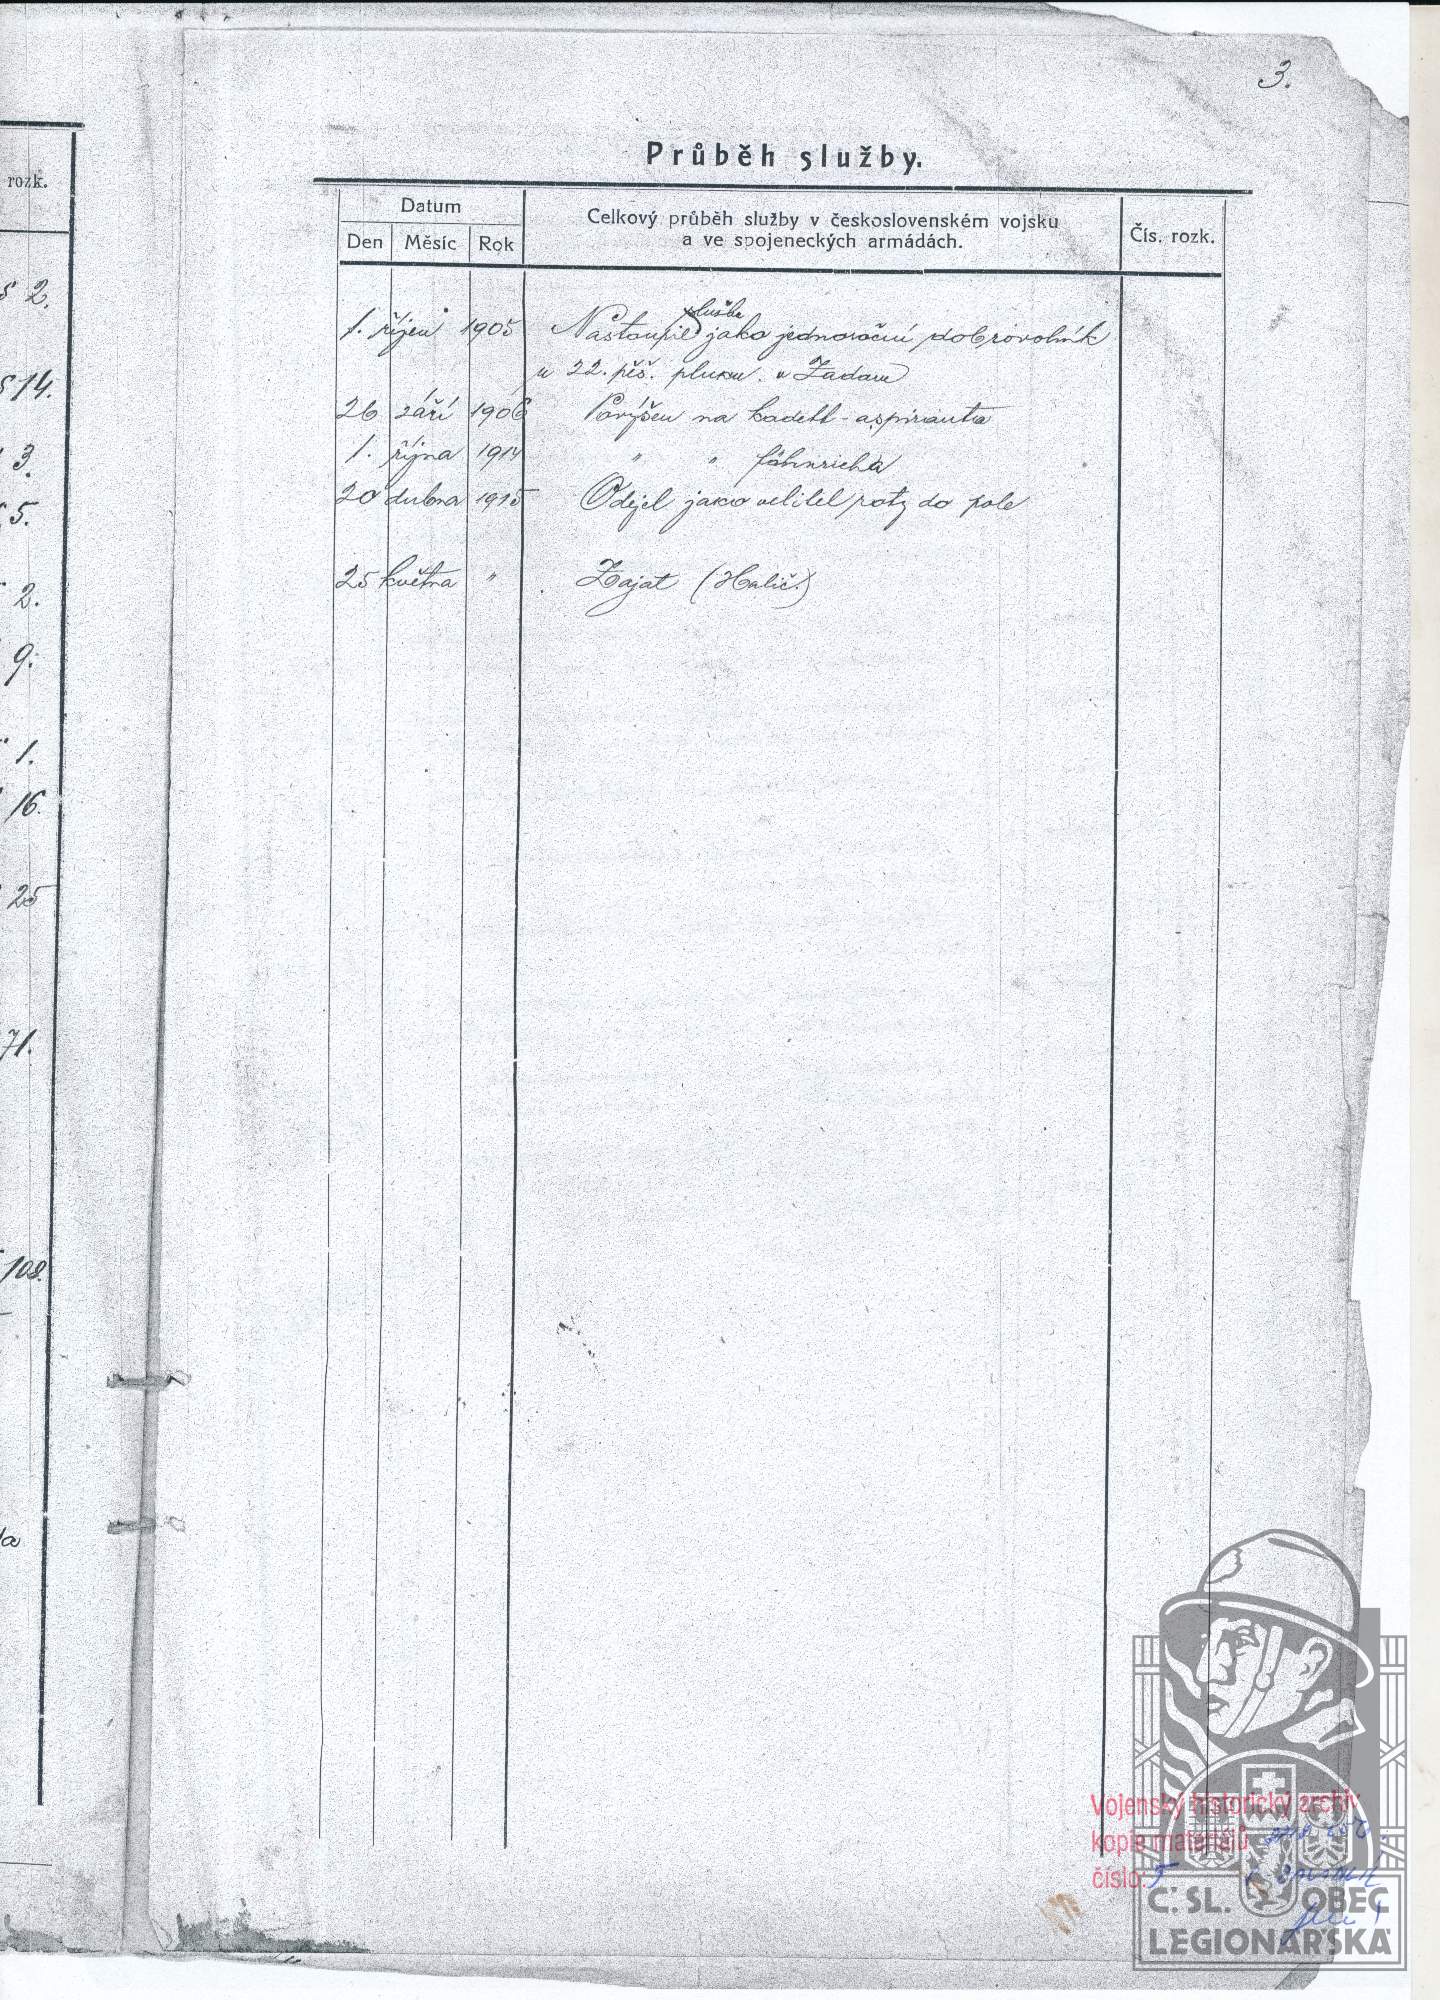 3.
rozk.
§ 2.
§ 14.
3.
5.
2.
9.
1.
16.
25
71.
108.
Průběh služby.
Datum
Den Měsíc Rok
Celkový průběh služby v československém vojsku
a ve spojeneckých armádách.
Čís. rozk.
službu
1. říjen 1905 Nastoupil jako jednoroční dobrovolník
u 22. pěš. pluku v Zadaru
26 září 1906 Povýšen na kadett-aspiranta
1. října 1914 " " fähnricha
20 dubna 1915 Odejel jako velitel roty do pole
25 května " Zajat (Halič.)
Vojenský historický archiv
kopie materiálů
číslo: 5
Č. SL. OBEC
LEGIONÁŘSKÁ